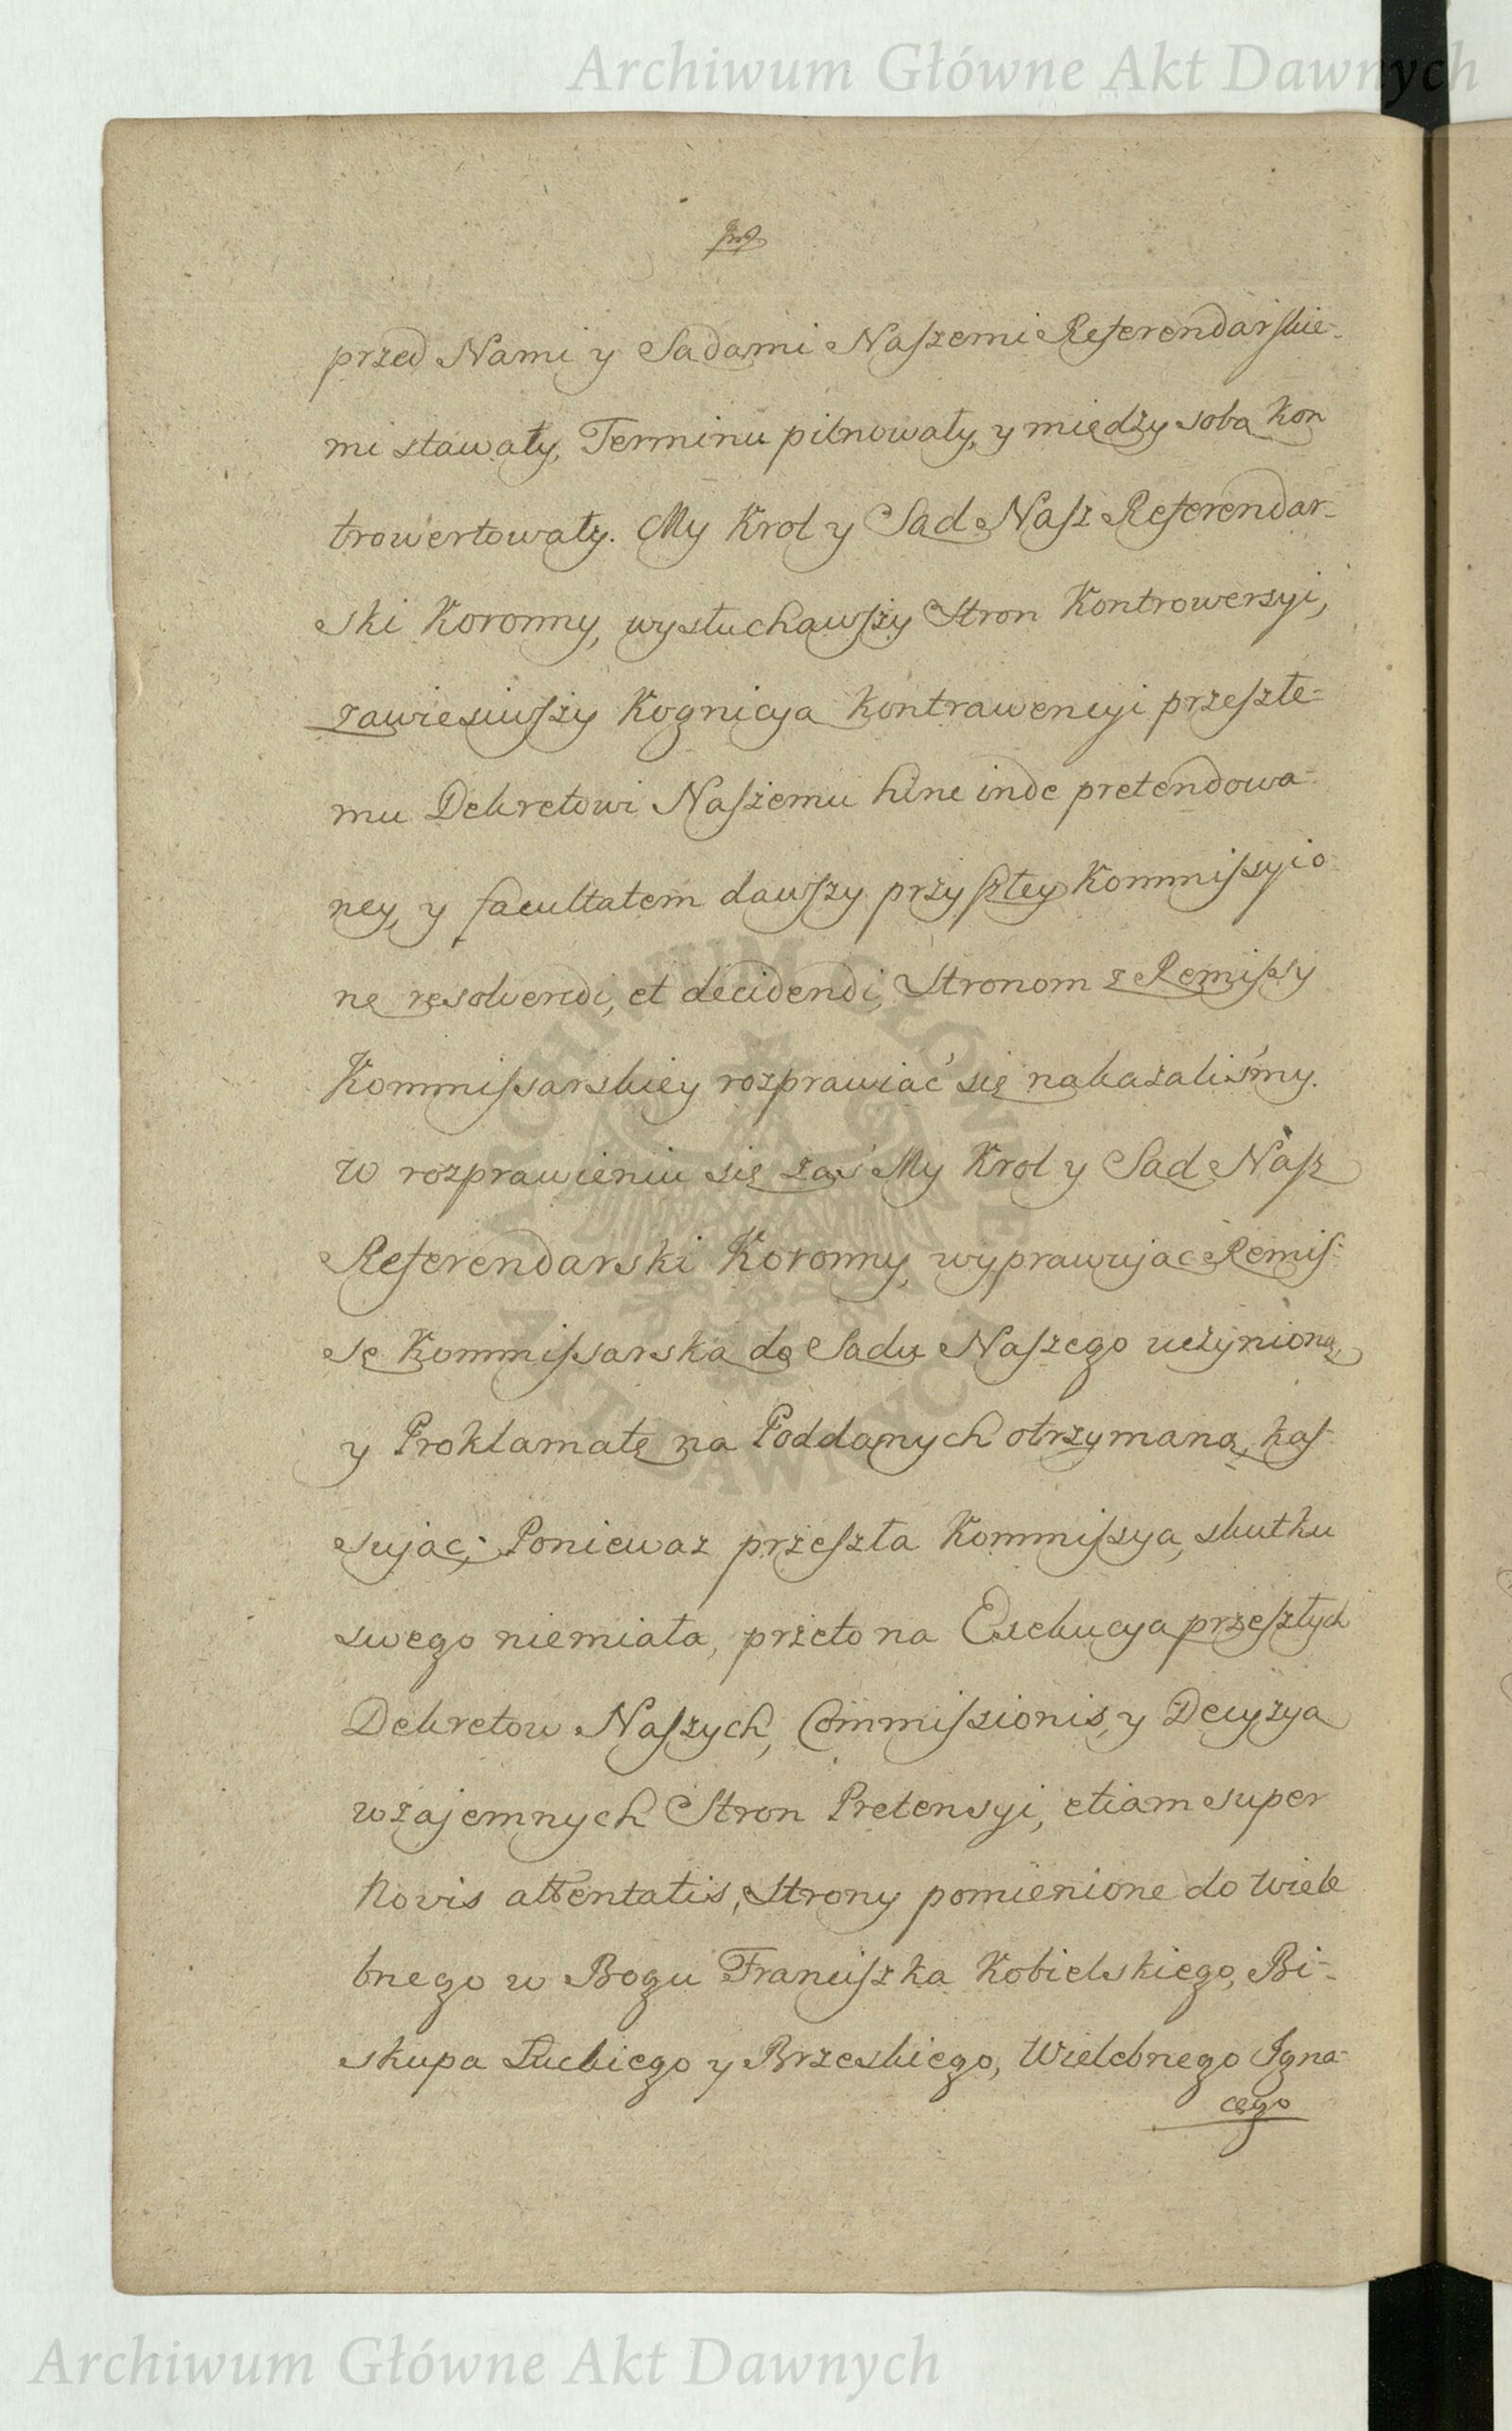 Archiwum Główne Akt Dawnych
przed Nami y Sądami Naszemi Referendarskie-
mi stawały, Terminu pilnowały, y między sobą kon
trowertowały. My Krol y Sąd Nasz Referendar-
ski Koronny, wysłuchawszy Stron Kontrowersyi,
zawiesiwszy Kognicyą kontrawencyi przeszłe=
mu Dekretowi Naszemu hinc inde pretendowa=
ney, y facultatem dawszy przyszłey Kommissyio
ne resolvendi, et decidendi, Stronom z Remissy
Kommissarskiey rozprawiać się nakazaliśmy.
W rozprawieniu się zaś My Krol y Sąd Nasz
Referendarski Koronny, wyprawując Remis=
sę Kommissarską do Sądu Naszego uczynioną,
y Proklamatę na Poddanych otrzymaną, kas=
sując; Poniewaz przeszła Kommissya, skutku
swego niemiała, przeto na Exekucyą przeszłych
Dekretow Naszych, Commissionis, y Decyzyą
wzajemnych Stron Pretensyi, etiam super
novis attentatis, Strony pomienione do Wiele
bnego w Bogu Franciszka Kobielskiego, Bi=
skupa Łuckiego y Brzeskiego, Wielebnego Igna=
cego
ARCHIWUM GŁÓWNE
AKT DAWNYCH
Archiwum Główne Akt Dawnych